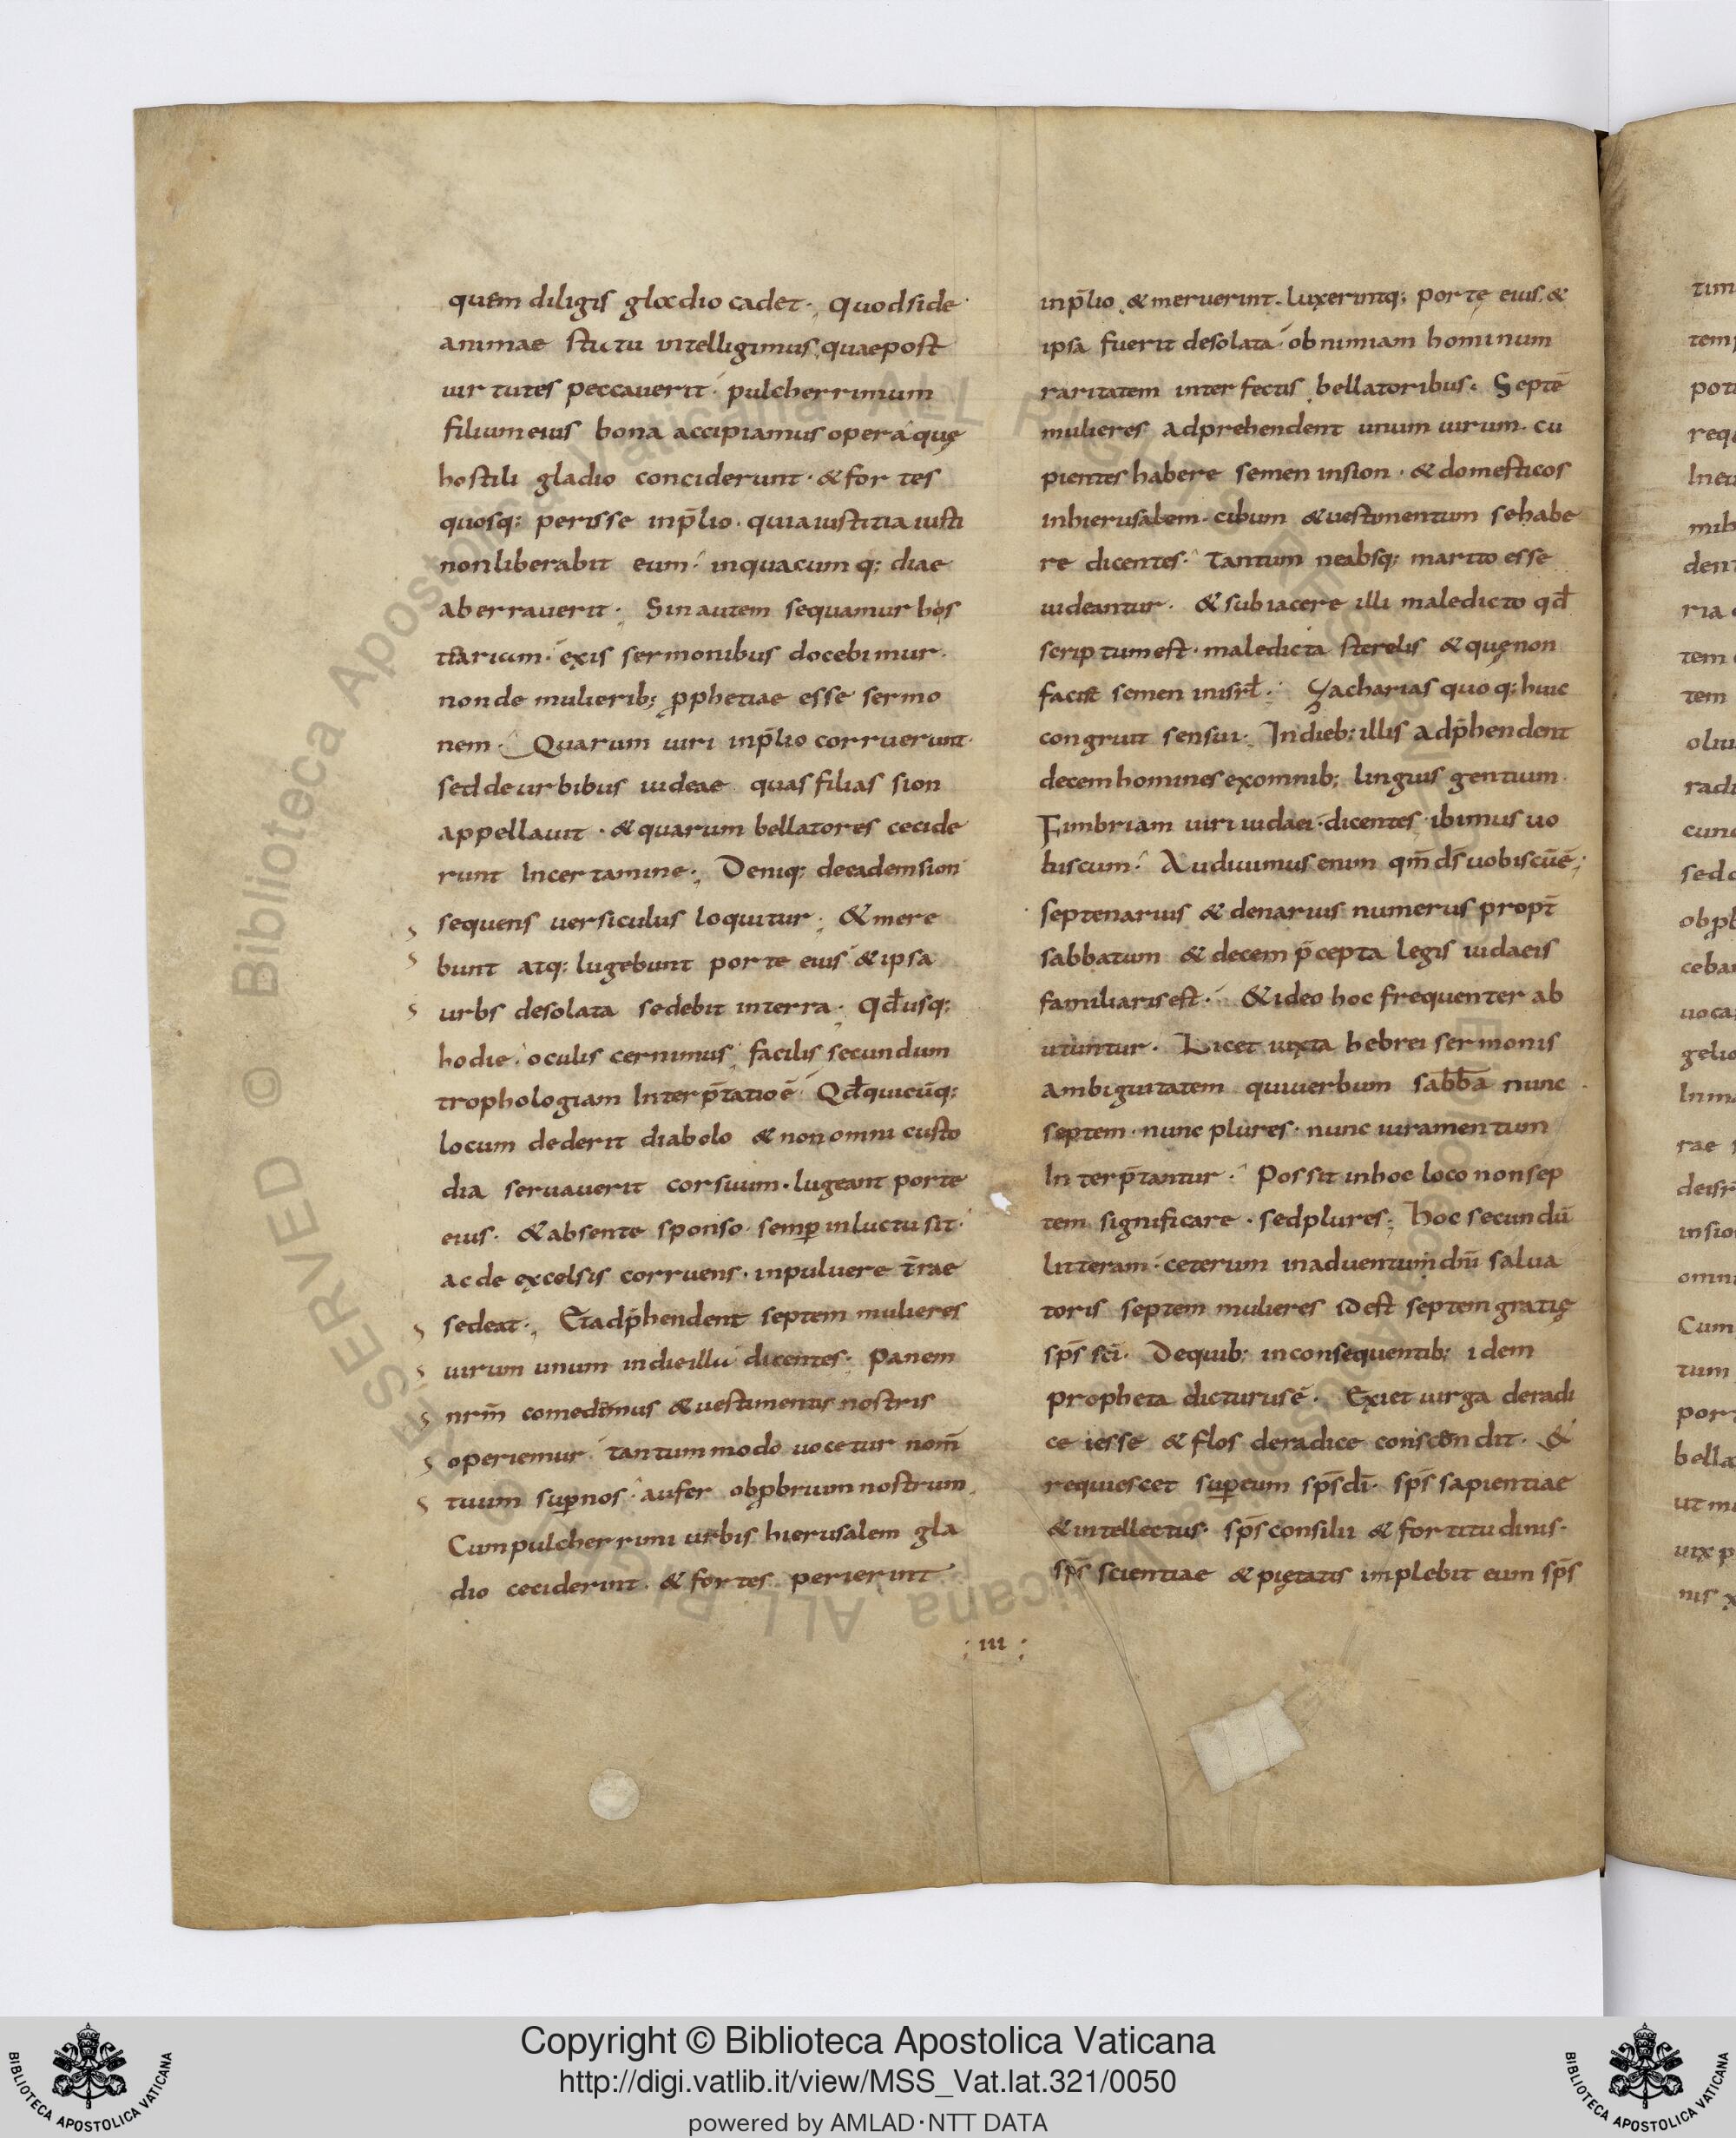 quem diligis gladio cadet·, quod si de
animae statu intelligimus, quae post
uirtutes peccauerit· pulcherrimum
filium eius bona accipiamus opera quę
hostili gladio conciderunt· & fortes
quosq; perisse in p̄lio· quia iustitia iusti
non liberabit eum· in quacumq; diae
aberrauerit·, Sin autem sequamur hos
tiarium· ex is sermonibus docebimur·
non de mulierib; ꝓphetiae esse sermo
nem· Quarum uiri in p̄lio corruerunt·
sed de urbibus iudeae quas filias sion
appellauit· & quarum bellatores cecide
runt Incertamine·, Deniq; de eadem sion
sequens uersiculus loquitur·, & mere
bunt atq; lugebunt porte eius & ipsa
urbs desolata sedebit in terra·, Qđ usq;
hodie oculis cernimus, facilis secundum
trophologiam Interp̄tatioē Qđ quicūq;
locum dederit diabolo & non omni custo
dia seruauerit cor suum· lugeant porte
eius· & absente sponso· semꝑ in luctu sit·
ac de excelsis corruens· in puluere t̄rae
sedeat·, Et adp̄hendent septem mulieres
uirum unum in die illa dicentes·, panem
nrm̄ comedemus & uestimentis nostris
operiemur tantum modo uocetur nom̄
tuum suꝑ nos· aufer obꝓbrium nostrum,
Cum pulcherrimi urbis hierusalem gla
dio ceciderint· & fortes perierint
in p̄lio & meruerint· luxerintq; porte eius· &
ipsa fuerit desolata ob nimiam hominum
raritatem interfectis bellatoribus· Septē
mulieres adprehendent unum uirum· cu
pientes habere semen in sion· & domesticos
in hierusalem· cibum & uestimentum se habe
re dicentes· Tantum ne absq; marito esse
uideantur· & subiacere illi maledicto qđ
scriptum est· maledicta sterelis & quę non
facit semen in isrl̄· Zacharias quoq; huic
congruit sensui·, In dieb; illis adp̄hendent
decem homines ex omnib; linguis gentium
Fimbriam uiri iudaei· dicentes· ibimus uo
biscum· Audiuimus enim qm̄ ds̄ uobiscū ē;
septenarius & denarius numerus propt̄
sabbatum & decem p̄cepta legis iudaeis
familiaris est· & ideo hoc frequenter ab
utuntur· Licet iuxta hebrei sermonis
ambiguitatem qui uerbum sab̄b̄a nunc
septem· nunc plures· nunc iuramentum
Interp̄tantur· Possit in hoc loco non sep
tem significare· sed plures·, Hoc secundū
litteram· ceterum in aduentum dn̄i salua
toris septem mulieres id est septem gratię
sp̄s sc̄i· De quib; in consequentib; idem
propheta dicturus ē· Exiet uirga de radi
ce iesse & flos de radice conscendit· &
requiescet suꝑ eum sp̄s dī· sp̄s sapientiae
& intellectus· sp̄s consilii & fortitudinis·
sp̄s scientiae & pietatis implebit eum sp̄s
: III :
Copyright © Biblioteca Apostolica Vaticana
http://digi.vatlib.it/view/MSS_Vat.lat.321/0050
powered by AMLAD·NTT DATA
BIBLIOTECA APOSTOLICA VATICANA
BIBLIOTECA APOSTOLICA VATICANA